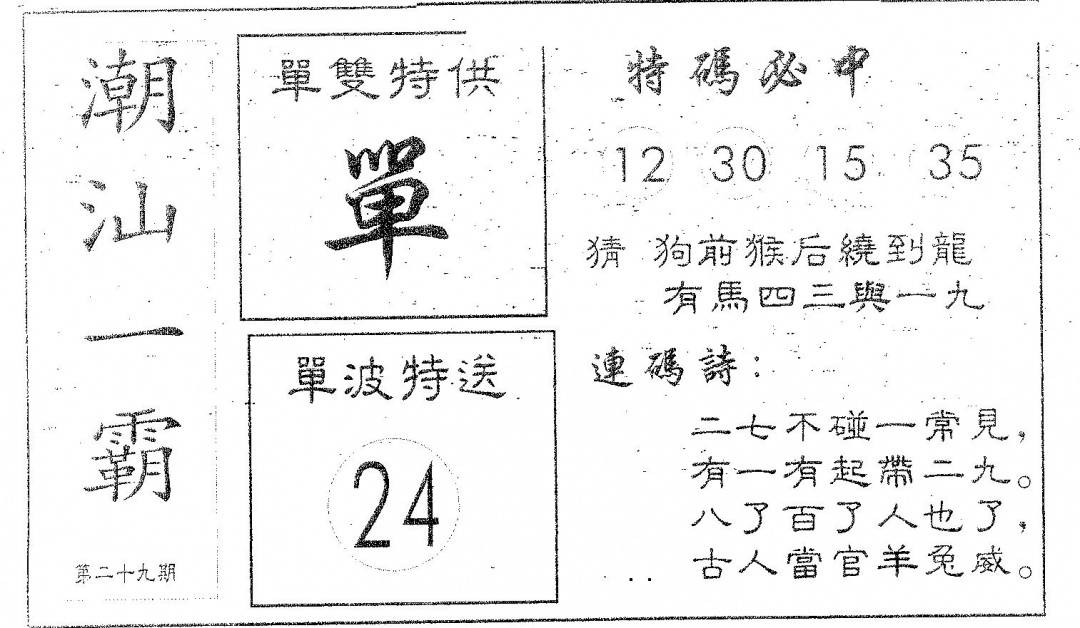 潮汕一霸
第二十九期
單雙特供
單
單波特送
24
特碼必中
12 30 15 35
猜 狗前猴后繞到龍
有馬四三與一九
連碼詩：
二七不碰一常見，
有一有起帶二九。
八了百了人也了，
古人當官羊兔威。